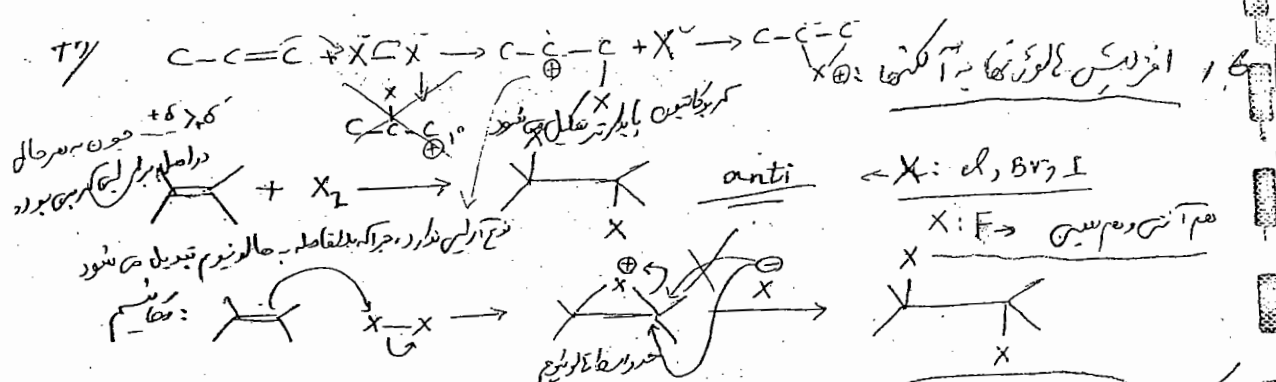 ۶, افزایش هالوژنها به آلکنها:
C-C=C + X-X → C-C-C + X → C-C-C
⊕ X X⊕
X C-C-C ⊕ 1°
کربوکاتیون پایدارتر تشکیل می شود
چون به هر حال
در اصل برای
+ X₂ → X X anti ← X: Cl, Br, I
X: F → هم آنتی و هم سین
نوآرایی ندارد، چراکه بلافاصله به هالونیوم تبدیل می شود
مکانیسم: X-X → X ⊕ X ⊖ → X X
حدواسط هالونیوم